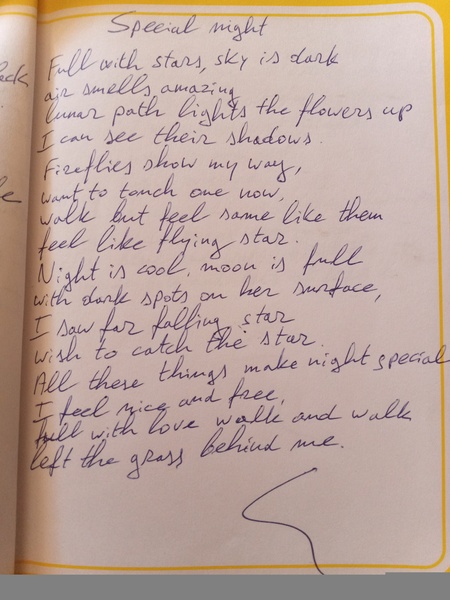 Special night
Full with stars, sky is dark
air smells amazing
lunar path lights the flowers up
I can see their shadows.
Fireflies show my way,
want to touch one now,
walk but feel same like them
feel like flying star.
Night is cool, moon is full
with dark spots on her surface,
I saw far falling star
wish to catch the star.
All these things make night special
I feel nice and free,
full with love walk and walk
left the grass behind me.